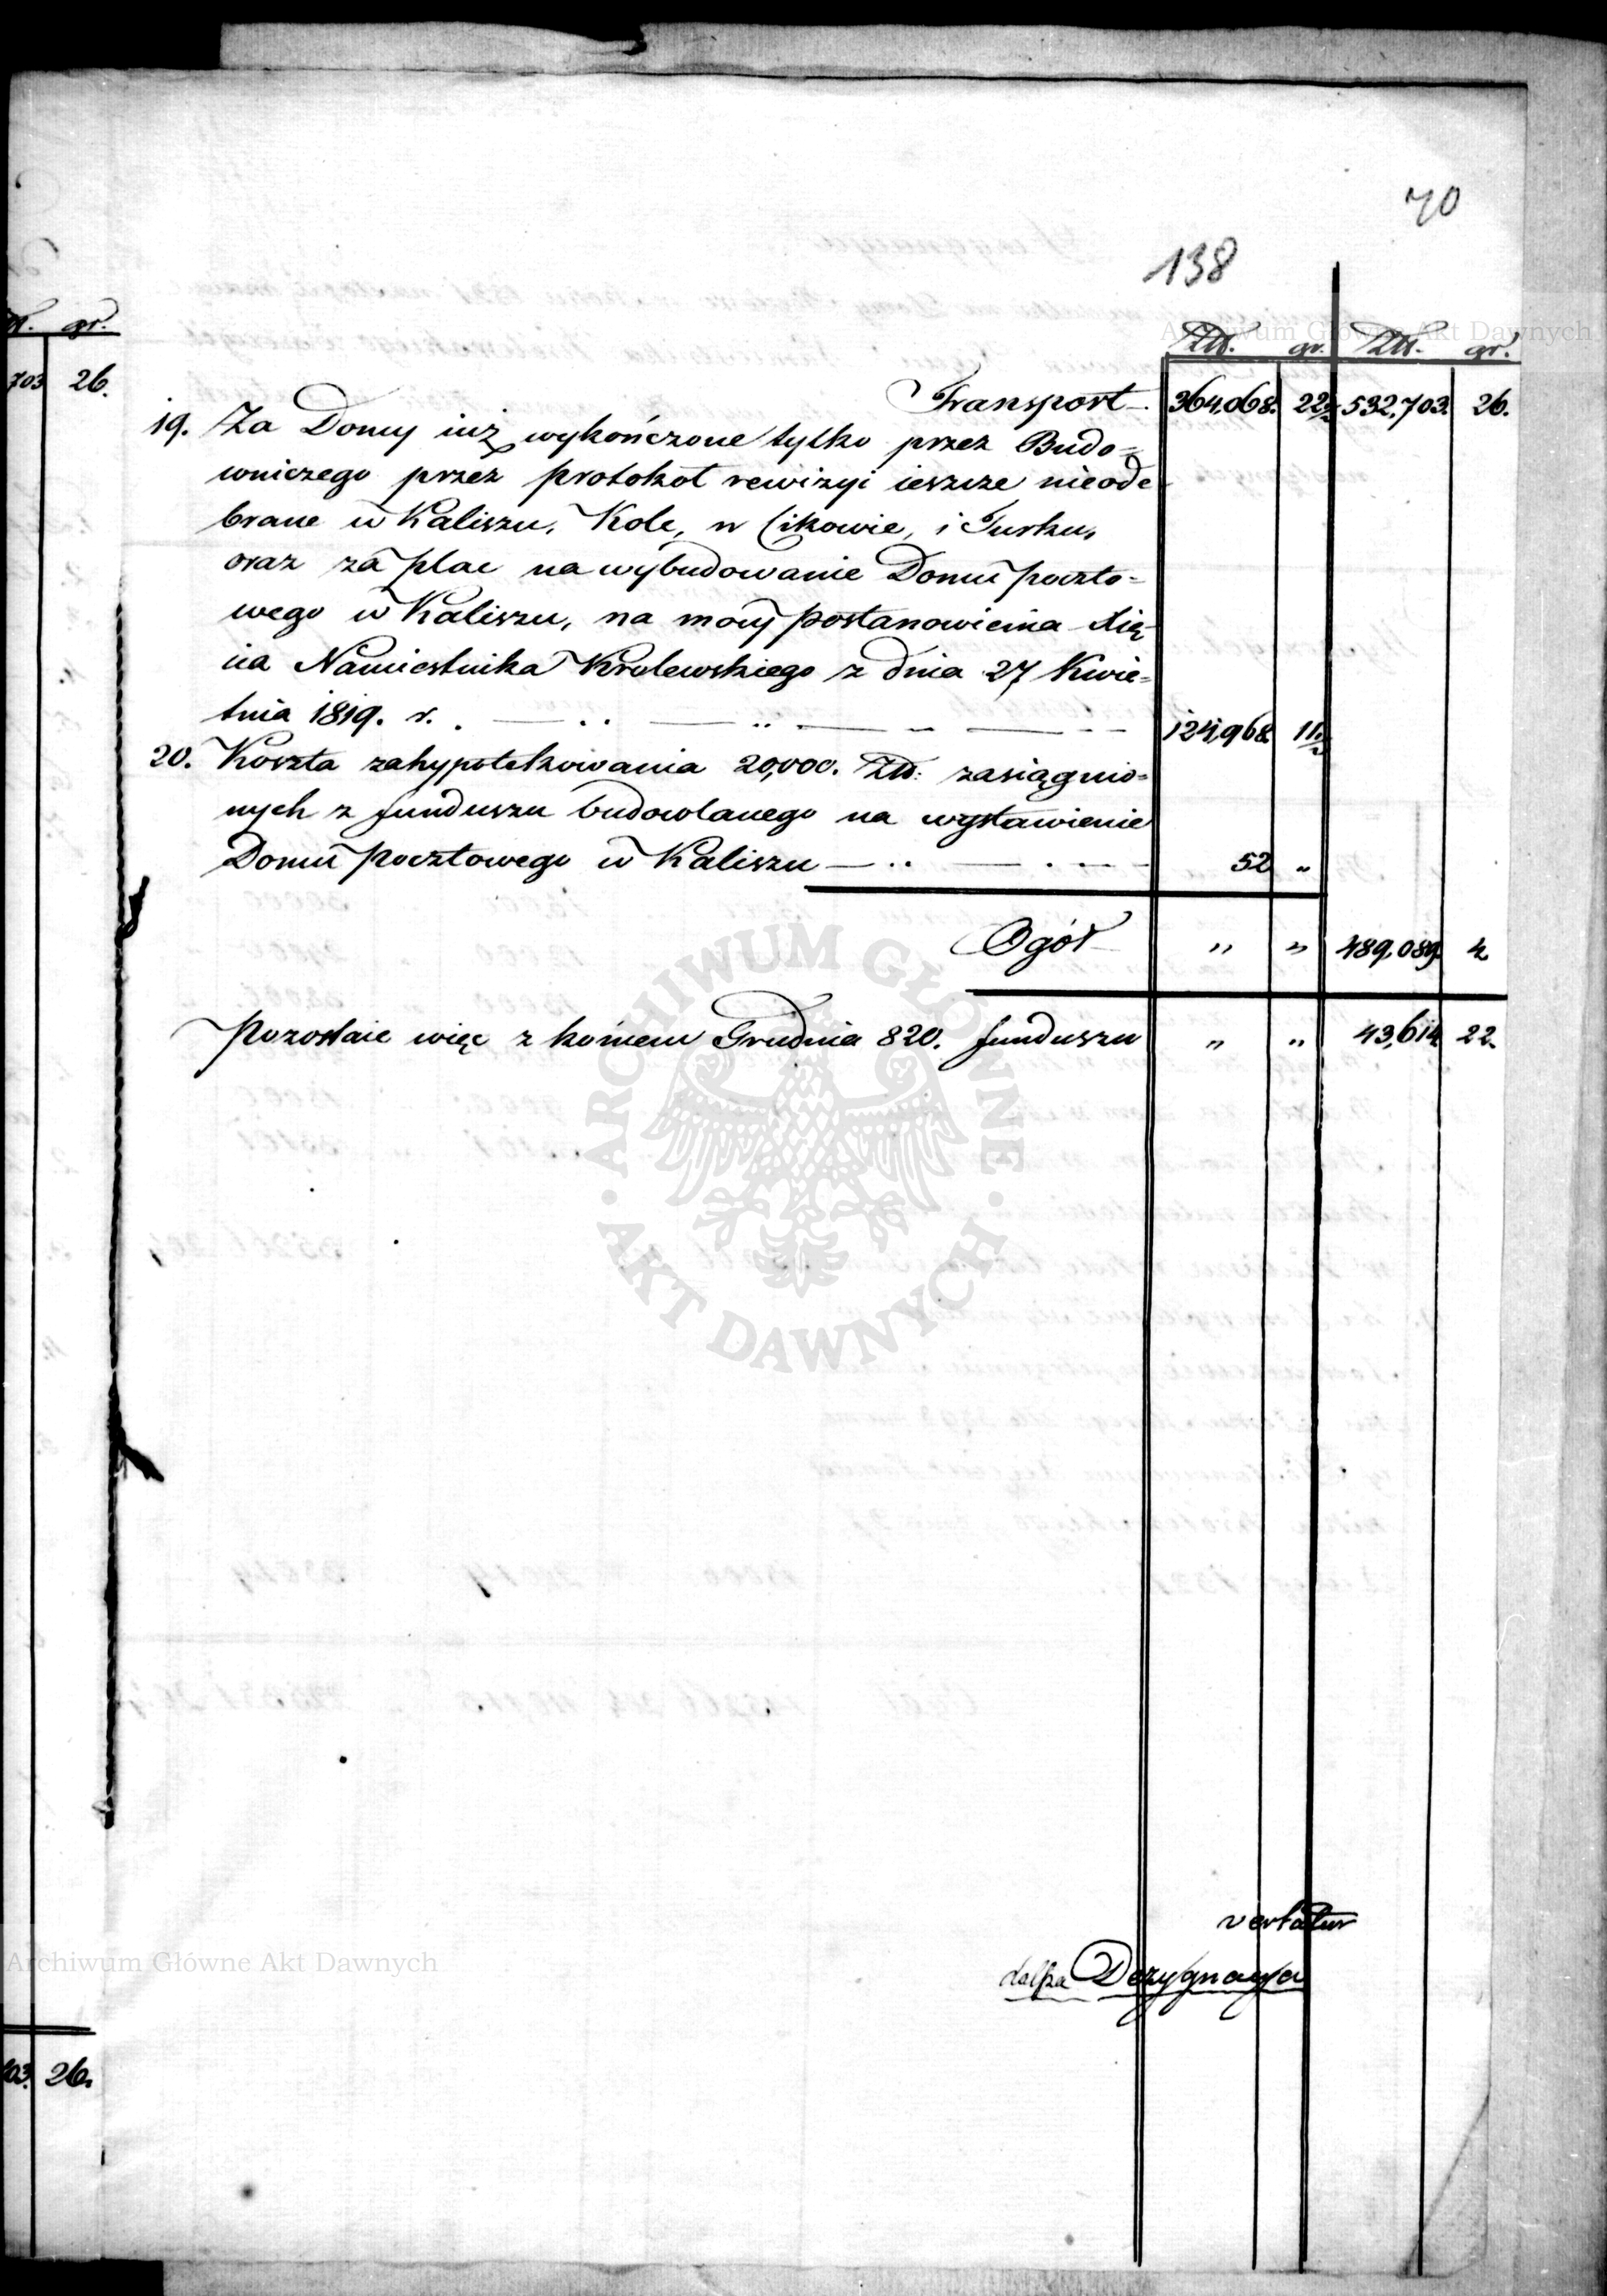 70
138
Złł. gr. Złł. gr.
gr.
703 26.
Transport 364,068. 22½ 532,703. 26.
19. Za Domy iuż wykończone tylko przez Budo=
wniczego przez protokoł rewizyi ieszcze nieode
brane w Kaliszu, Kole, w Cikowie, i Turku,
oraz za plac na wybudowanie Domu poczto=
wego w Kaliszu, na mocy postanowienia Xię
cia Namiestnika Krolewskiego z dnia 27 Kwie=
tnia 1819. r. 124,968. 11½
20. Koszta zahypotekowania 20,000. Złł: zasiągnio=
nych z funduszu budowlanego na wystawienie
Domu pocztowego w Kaliszu 52 „
Ogół „ „ 489,089. 4
Pozostaie więc z końcem Grudnia 820. funduszu „ „ 43,614 22.
vertatur
dalsza Dezygnacya
703. 26.
Archiwum Główne Akt Dawnych
ARCHIWUM GŁÓWNE AKT DAWNYCH
Archiwum Główne Akt Dawnych